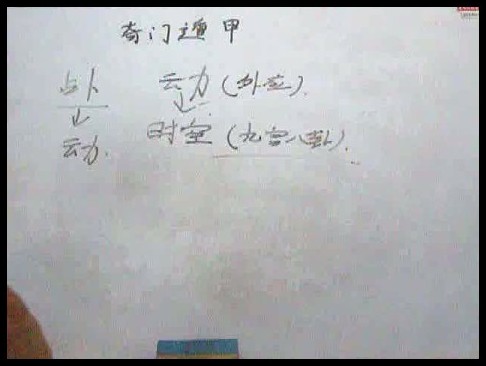 奇门遁甲
占卜 动(外应)
动
时空(九宫八卦)